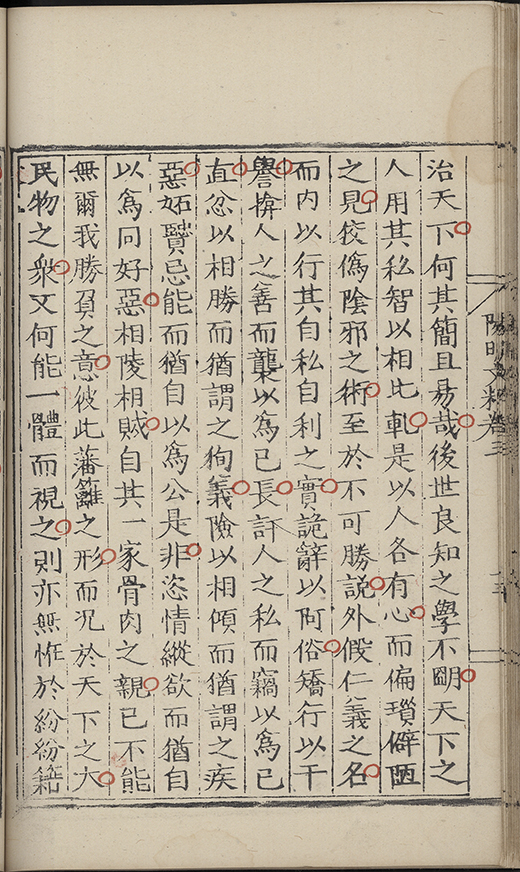 治天下何其簡且易哉後世良知之學不明天下之
人用其私智以相比軋是以人各有心而偏瑣僻陋
之見狡僞陰邪之術至於不可勝說外假仁義之名
而内以行其自私自利之實詭辭以阿俗矯行以干
譽揜人之善而襲以爲己長訐人之私而竊以爲己
直忿以相勝而猶謂之徇義險以相傾而猶謂之疾
惡妬賢忌能而猶自以爲公是非恣情縱欲而猶自
以爲同好惡相陵相賊自其一家骨肉之親已不能
無爾我勝負之意彼此藩籬之形而况於天下之大
民物之衆又何能一體而視之則亦無怪於紛紛籍
陽明文粹卷三